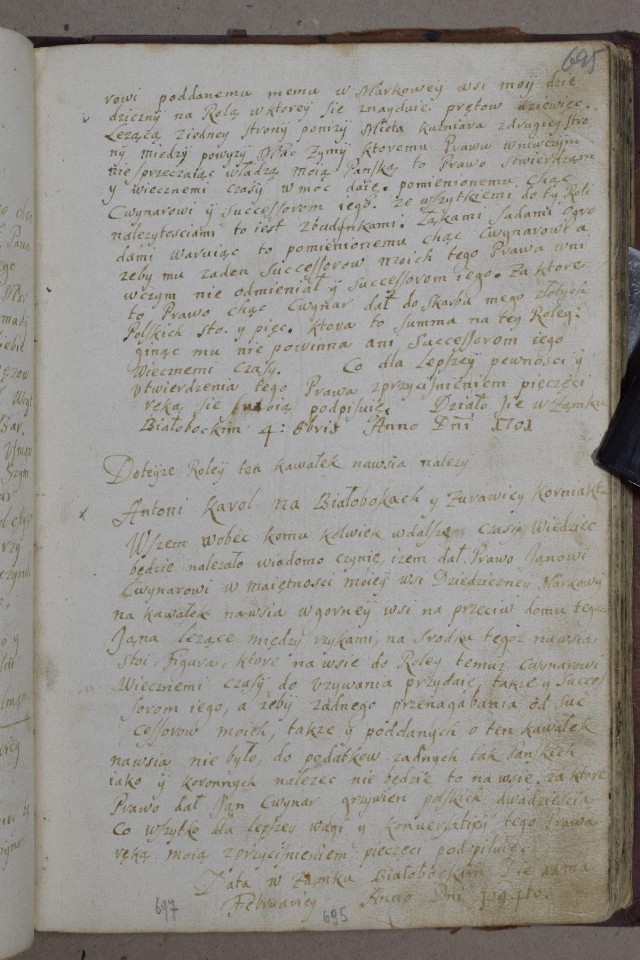 695
rowi poddanemu memu w Markowey wsi moiy dzie
dziczny na Rolą w ktorey się znayduie prętow dziewięc.
Leząca ziedney strony ponizy Mleta kuzniara z drugiey stro
ny miedzy powyzy Mac Zymy ktoremu Prawu wniwczym
nie przeczaiąc władzą moią Panską to Prawo stwierdzam
y wiecznemi czasy w moc daię pomienionemu Chąc
Cwynarowi ÿ Successorom iego. ze wszytkiemi do ty Roli
nalezytosciami to iest zbudinkami. Łąkami Sadami Ogro
dami waruiąc to pomienionemu chąc Cwynarowi a
zeby mu zaden Successorow moich tego Prawa wni
wczym nie odmieniał ÿ Successorom iego. Za ktore
to Prawo chąc Cwynar dał do Skarbu mego złotych
Polskich sto. y pięc. ktora to Summa na tey Roley:
ginąc mu nie powinna ani Successorom iego
Wiecznemi Czasy. Co dla Lepszey pewnosci ÿ
vtwierdzenia tego Prawa zprzycisnieniem pieczęci
ręką się swoią podpisuię. Działo się w Zamku
Białobockim 4: 8bris Anno Dni 1701
Doteyze Roleÿ ten kawałek nawsia nalezy
Antoni Karol na Białobokach y Zurawicy Korniakt
Wszem wobec komu kolwiek wdalszem czasy Wiedziec
będzie nalezało wiadomo czynię, izem dał Prawo Janowi
Cwynarowi w maiętnosci moieÿ wsi Dziedziczney Markowy
na kawałek nawsia wgorney wsi na przeciw domu tegusz
Jana lezące między rzykami, na srodku tegoz nawsia
stoi Figura, ktore nawsie do Roley temuz Cwynarowi
Wiecznemi czasÿ do vzywania przydaię, takze y Succes
sorom iego, a zebÿ zadnego przenagabania od Suc
cessorow moich, takze ÿ poddanych o ten kawałek
nawsia nie było, do podatkow zadnych tak Panskich
iako ÿ koronnych nalezec nie będzie to nawsie. za ktore
Prawo dał Jan Cwynar grzywien polskich dwadziescia
Co wszytko dla lepszey wagi y konuersatiey tego Prawa
ręką moią zprzycisnieniem pieczęci podpisuię.
Data w Zamku Białobockim Die
Februaricy Anno Dni
697 695